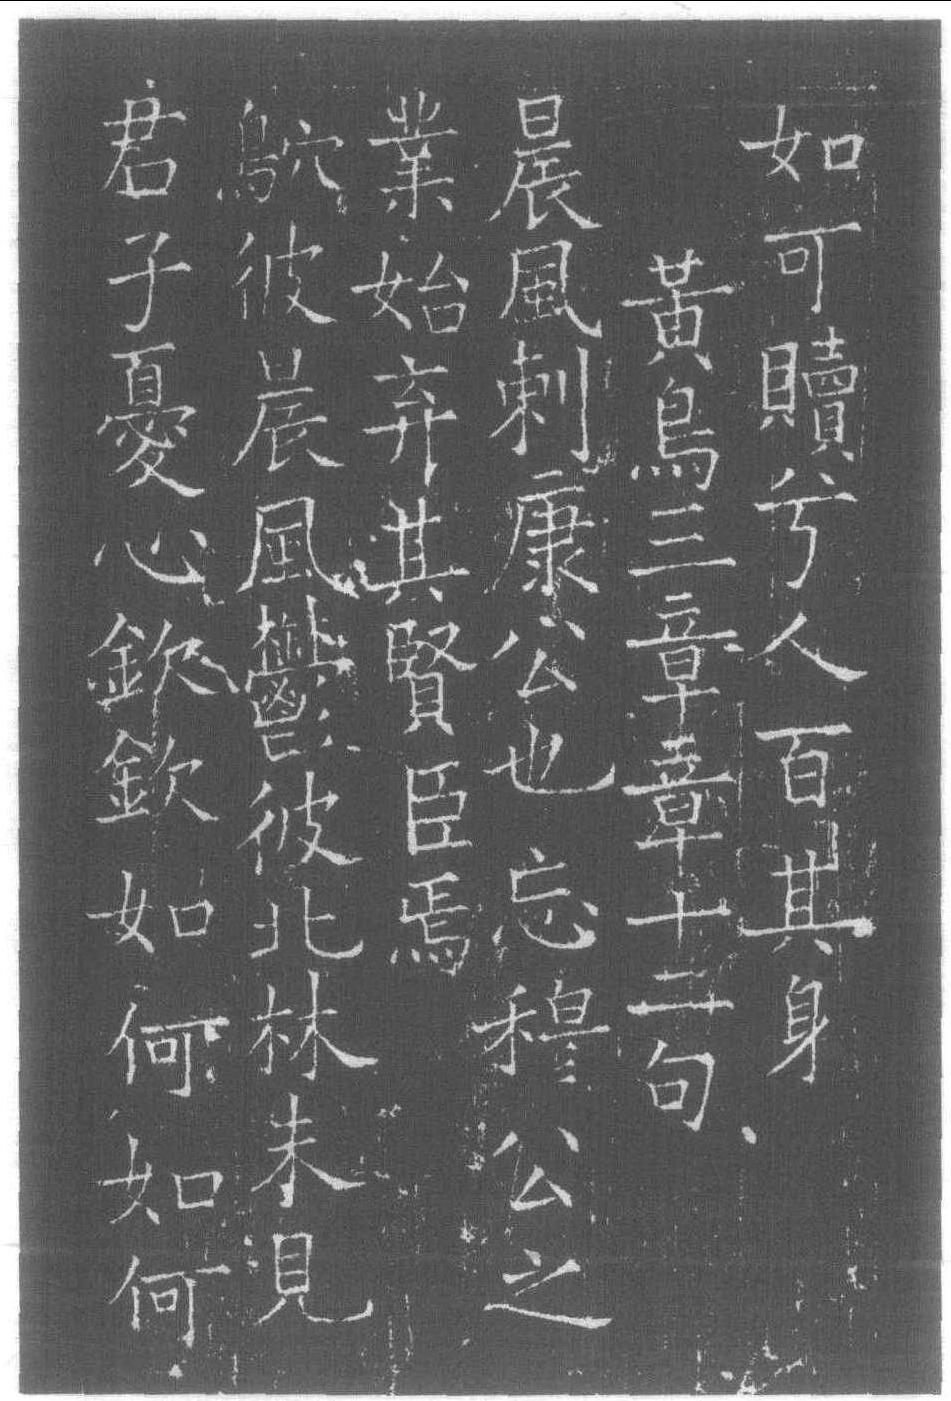 如可贖兮人百其身
黃鳥三章章十二句
晨風刺康公也忘穆公之
業始弃其賢臣焉
鴥彼晨風鬱彼北林未見
君子憂心欽欽如何如何